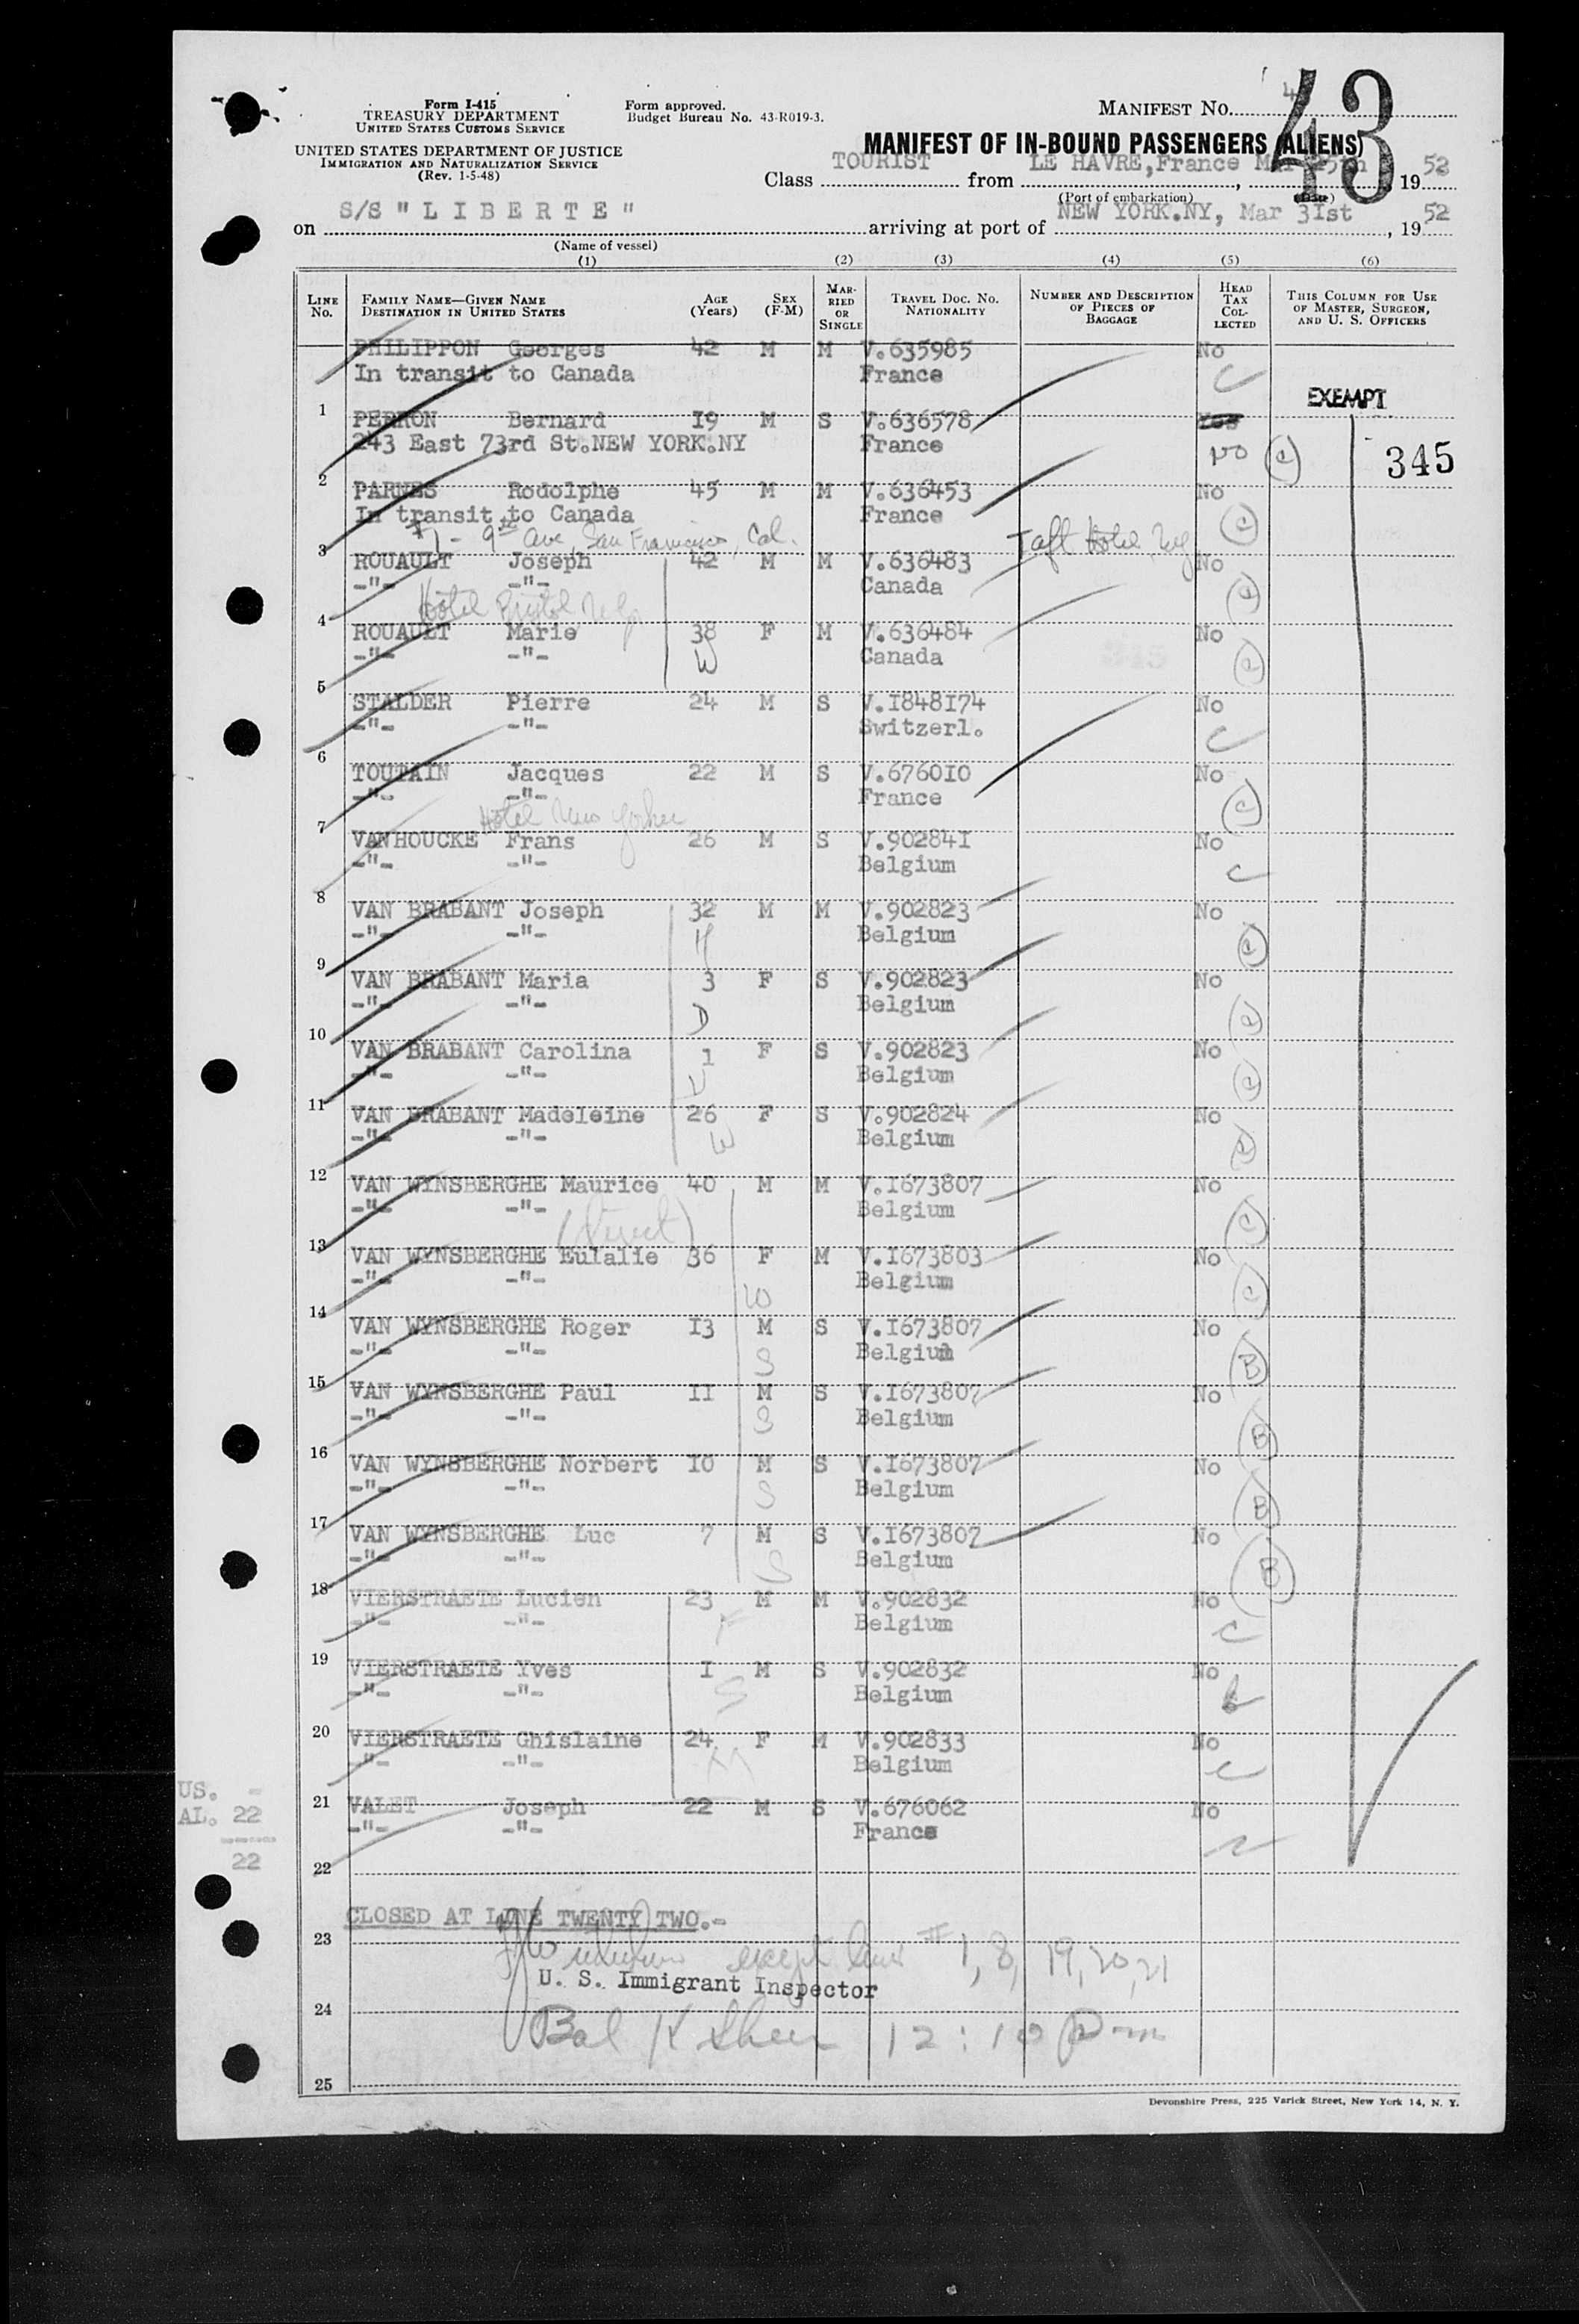 Form I-415
TREASURY DEPARTMENT
UNITED STATES CUSTOMS SERVICE
UNITED STATES DEPARTMENT OF JUSTICE
IMMIGRATION AND NATURALIZATION SERVICE
(Rev. 1-5-48)
Form approved.
Budget Bureau No. 43-R019-3.
MANIFEST NO.
43
MANIFEST OF IN-BOUND PASSENGERS (ALIENS)
Class TOURIST from LE HAVRE,France Mar 25th, 1952
(Port of embarkation) (Date)
on S/S "L I B E R T E" arriving at port of NEW YORK.NY, Mar 3Ist, 1952
(Name of vessel)
(1) (2) (3) (4) (5) (6)
LINE NO. FAMILY NAME—GIVEN NAME DESTINATION IN UNITED STATES AGE (Years) SEX (F-M) MARRIED OR SINGLE TRAVEL DOC. NO. NATIONALITY NUMBER AND DESCRIPTION OF PIECES OF BAGGAGE HEAD TAX COLLECTED THIS COLUMN FOR USE OF MASTER, SURGEON, AND U. S. OFFICERS
PHILIPPON Georges 42 M M V.635985 No
In transit to Canada France C
1 EXEMPT
PERRON Bernard I9 M S V.636578 Yes
243 East 73rd St.NEW YORK.NY France No C 345
2
PARNES Rodolphe 45 M M V.636453 No
In transit to Canada France C
9th Ave San Francisco, Cal. Taft Hotel
3
ROUAULT Joseph 42 M M V.636483 No
-"- -"- Canada C
Hotel Bristol
4
ROUAULT Marie 38 F M V.636484 No
-"- -"- W Canada C
5
STALDER Pierre 24 M S V.I848I74 No
-"- -"- Switzerl. C
6
TOUTAIN Jacques 22 M S V.6760I0 No
-"- -"- France C
Hotel New Yorker
7
VANHOUCKE Frans 26 M S V.90284I No
-"- -"- Belgium C
8
VAN BRABANT Joseph 32 M M V.902823 No
-"- -"- H Belgium C
9
VAN BRABANT Maria 3 F S V.902823 No
-"- -"- D Belgium C
10
VAN BRABANT Carolina 1 F S V.902823 No
-"- -"- D Belgium C
11
VAN BRABANT Madeleine 26 F S V.902824 No
-"- -"- W Belgium C
12
VAN WYNSBERGHE Maurice 40 M M V.I673807 No
-"- -"- Belgium C
13
VAN WYNSBERGHE Eulalie 36 F M V.I673803 No
-"- -"- W Belgium C
14
VAN WYNSBERGHE Roger I3 M S V.I673807 No
-"- -"- S Belgium B
15
VAN WYNSBERGHE Paul II M S V.I673807 No
-"- -"- S Belgium B
16
VAN WYNSBERGHE Norbert I0 M S V.I673807 No
-"- -"- S Belgium B
17
VAN WYNSBERGHE Luc 7 M S V.I673807 No
-"- -"- S Belgium B
18
VIERSTRAETE Lucien 23 M M V.902832 No
-"- -"- F Belgium C
19
VIERSTRAETE Yves I M S V.902832 No
-"- -"- S Belgium b
20
VIERSTRAETE Ghislaine 24 F M V.902833 No
-"- -"- M Belgium C
US. -
AL. 22
----
22
21
VALET Joseph 22 M S V.676062 No
-"- -"- France
22
CLOSED AT LINE TWENTY TWO.-
23
except lines # 1, 8, 19, 20, 21
U. S. Immigrant Inspector
24
Bal 12:10 pm
25
Devonshire Press, 225 Varick Street, New York 14, N. Y.